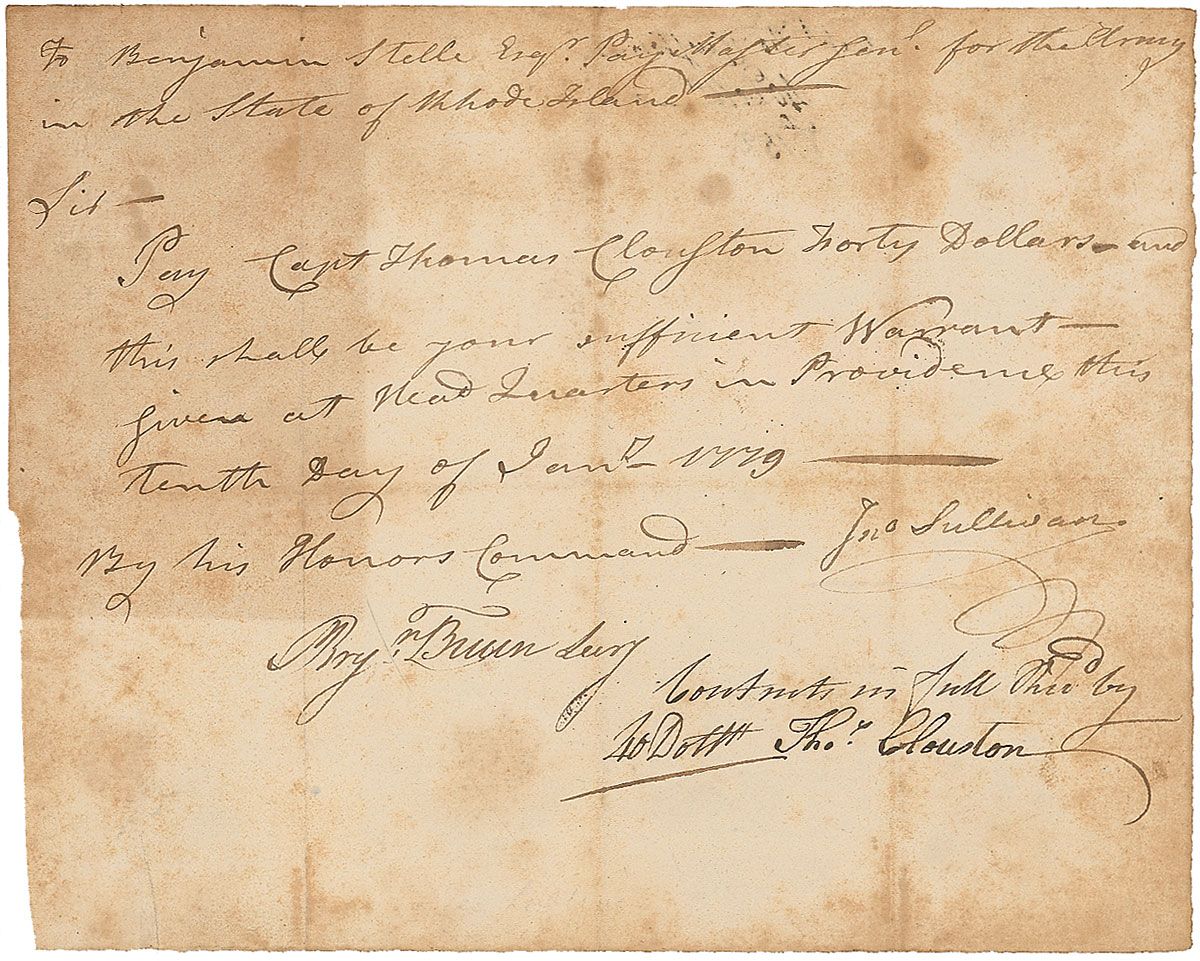 To Benjamin Stelle Esqr. Pay Master Genl. for the Army
in the State of Rhode Island
Sir —
Pay Capt Thomas Clouston Forty Dollars – and
this shall be your sufficient Warrant —
given at Head Quarters in Providence this
tenth Day of Jany 1779
By his Honors Command — Jno Sullivan
Secy
Contents in full Recd by
40 Dolls Thos. Clouston